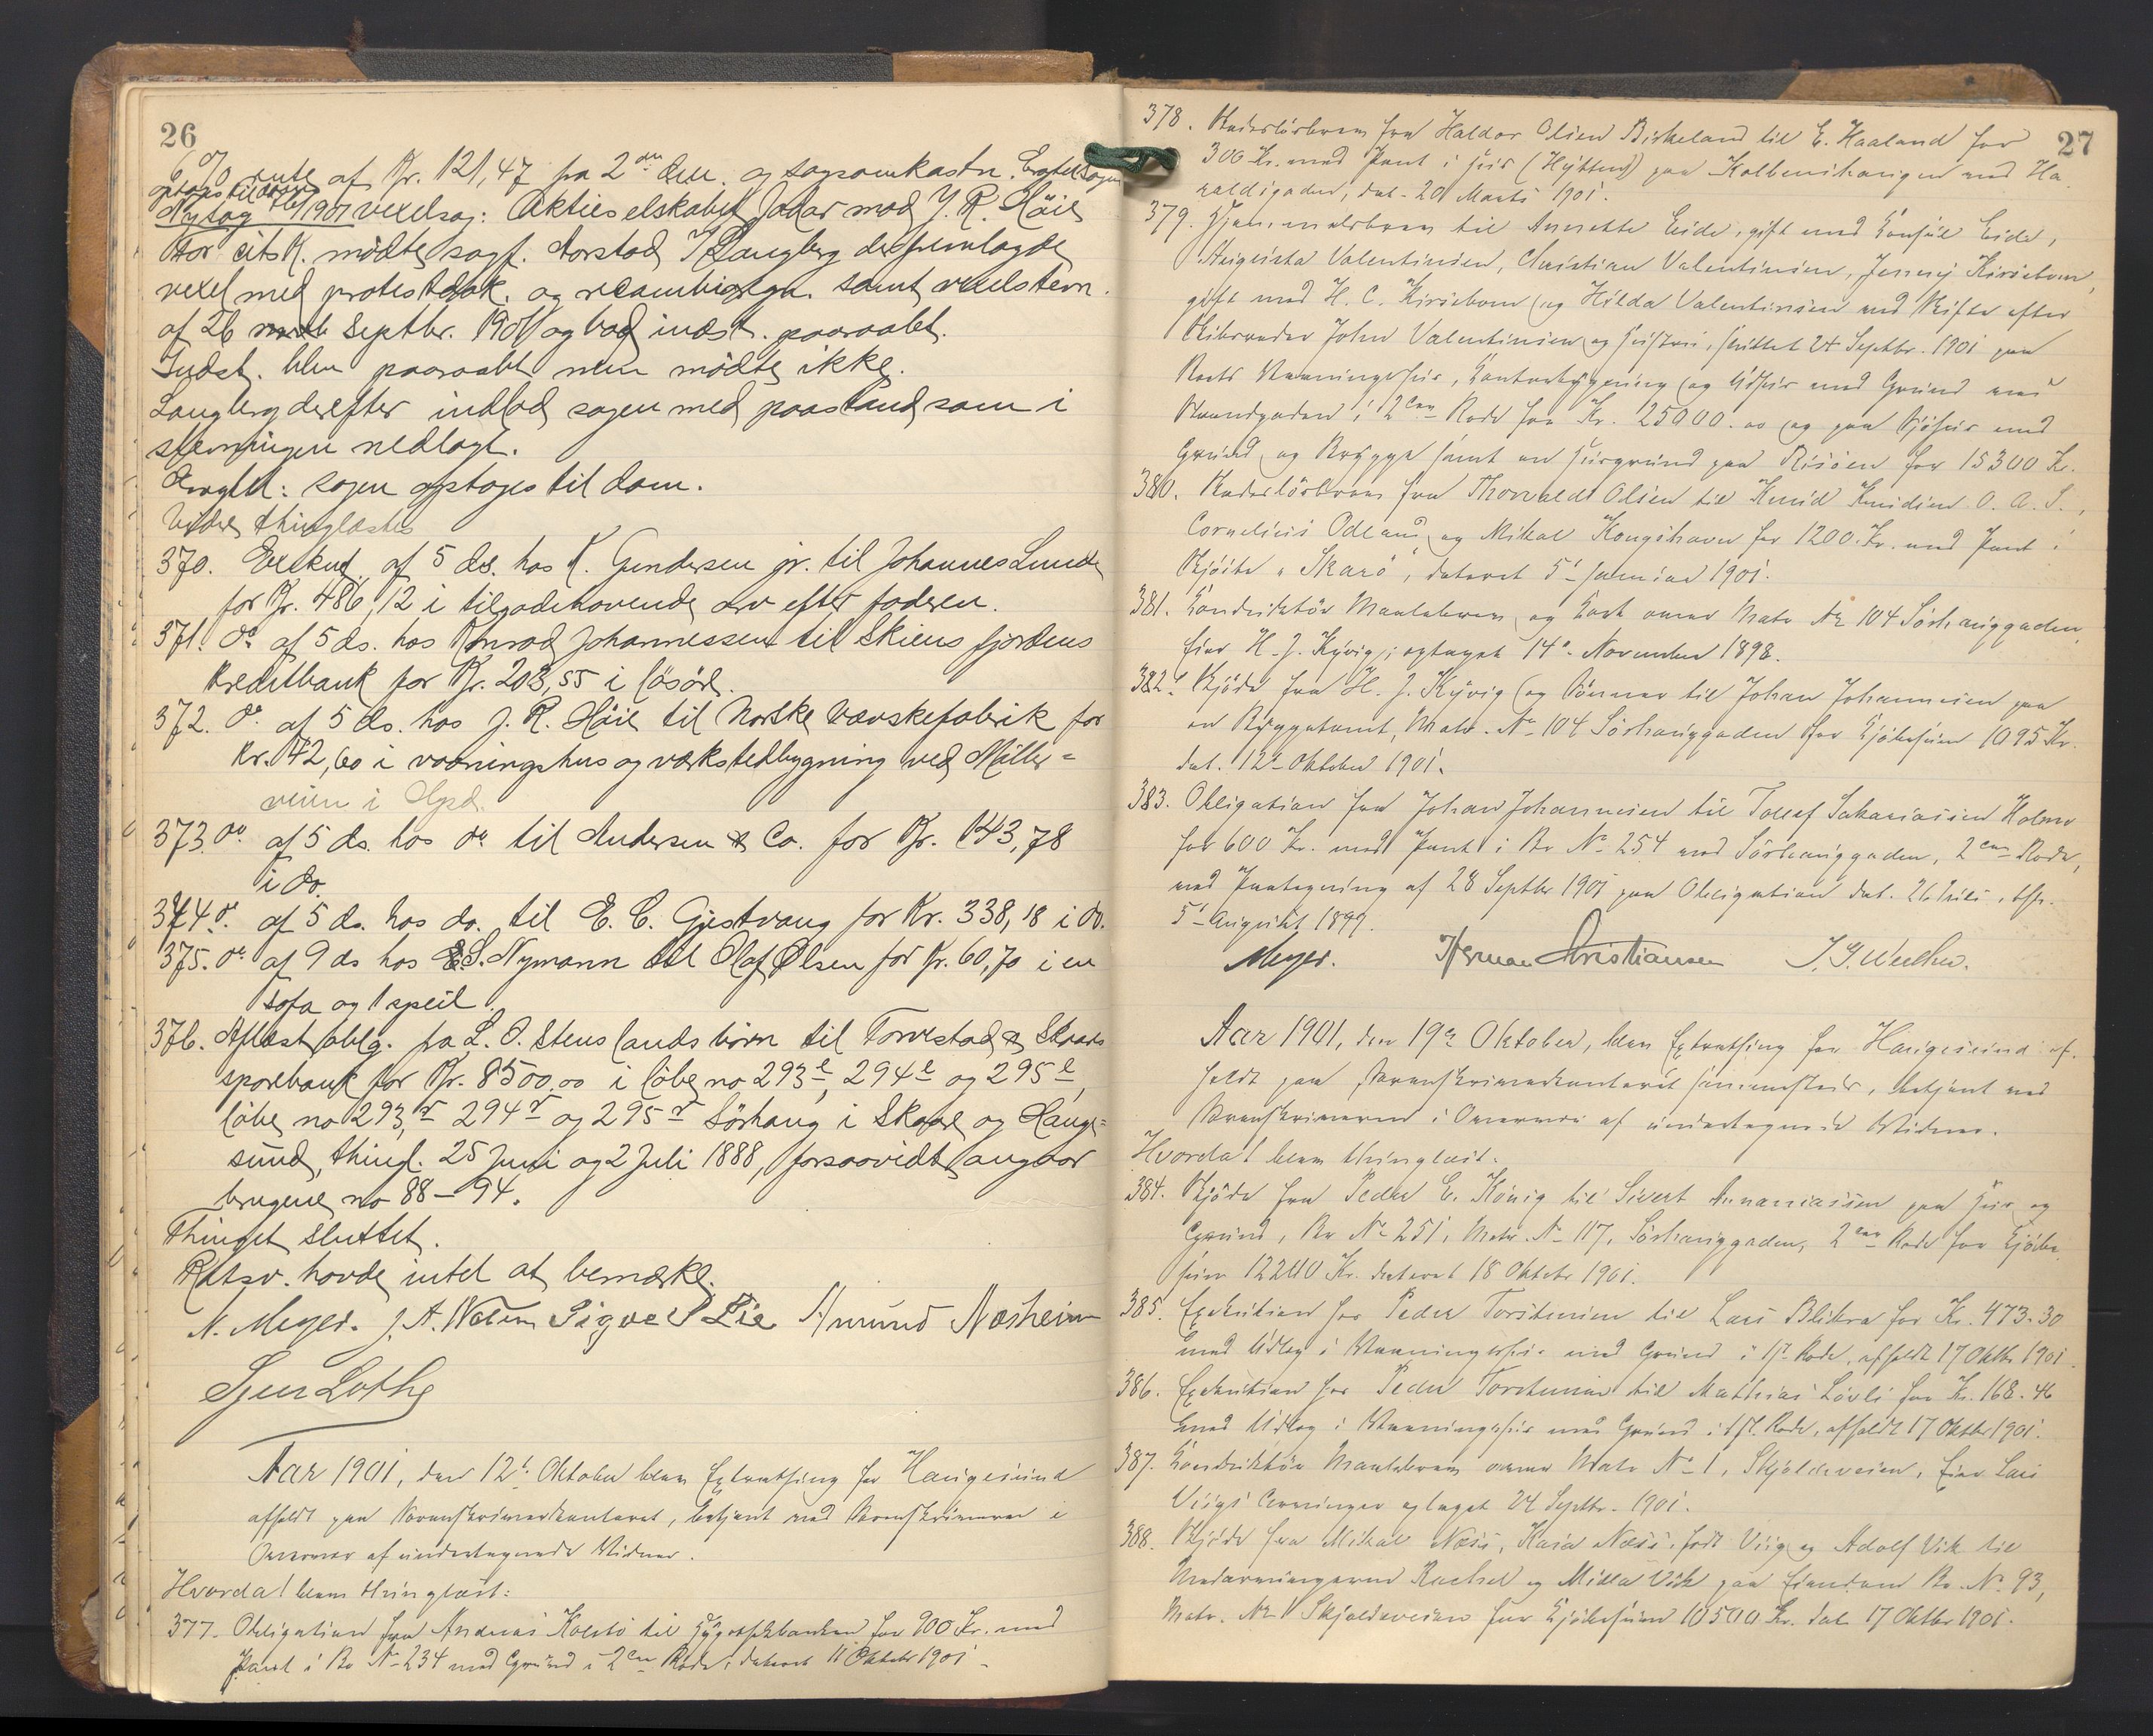 26
6 % rente af Kr. 121,47 fra 2den Okt. og sagsomkostn. Eragtet: sagen
optages til doms
Ny sag 1901 vexelsag: Aktieselskabet Jadar mod J. R. Høie
For cits K. mødte sagf. Aorstad v/ Langberg der fremlagde
vexel med protestdok. og recambioregn. samt vexelstevn.
af 26 Septbr. 1901 og bad indst. paaraabt.
Indst. blev paaraabt men mødte ikke.
Langberg derefter indlod sagen med paastand som i
stevningen nedlagt.
Eragtet: sagen optages til dom.
Videre thinglæstes
370. Exekut. af 5 ds. hos K. Gundersen jr. til Johannes Lunde
for Kr. 486,12 i tilgodehavende arv efter faderen.
371. do af 5 ds. hos Konrad Johannessen til Skiens fjordens
Kreditbank for Kr. 203,55 i løsøre.
372. do af 5 ds. hos J. R. Høie til Norske Vævskefabrik for
Kr. 42,60 i vaaningshus og værkstedbygning ved Møller=
veien i Hgsd.
373. do af 5 ds. hos do til Andersen & Co. for Kr. 143,78
i do.
374 do. af 5 ds. hos do. til E. C. Gjestvang for Kr. 338,18 i do.
375. do af 9 ds hos S. Nymann til Olaf Olsen for Kr. 60,70 i en
sofa og 1 speil.
376. Aflæst oblg. fra L. O. Stenslands børn til Torvestad & Skaare
sparebank for Kr. 8500,00 i løbe no 293 l, 294 l og 295 l,
løbe no 293 r, 294 r og 295 r Sørhaug i Skaare og Hauge=
sund, thingl. 25 Juni og 2 Juli 1888, forsaavidt angaar
brugene no 88-94.
Thinget sluttet.
Retsv. havde intet at bemærke.
N. Meyer. J. A. Sigve S Lie Amund Næsheim
Sjur Lothe
Aar 1901, den 12te Oktober blev Extrathing for Haugesund
afholdt paa Sorenskriverkontoret, betjent med Sorenskriveren i
Overvær af undertegnede Vidner.
Hvorda! blev thinglæst:
377. Obligation fra Andreas Kolstø til Hypothekbanken for 900 Kr. med
Pant i Br No 234 med Grund i 2den Rode, dateret 11 Oktober 1901.
27
378. Skadesløsbrev fra Haldor Olsen Birkeland til E. Haaland for
300 Kr. med Pant i Hus (Hytten) paa Kolbeinshaugen med Ha
raldsgaden, dat. 20 Marts 1901.
379. Hjemmelsbrev til Annette Eide, gift med Konsul Eide,
Augusta Valentinsen, Christian Valentinsen, Jenny Kirsebom,
gift med H. C. Kirsebom og Hilda Valentinsen ved Skifte efter
Skibsreder John Valentinsen og Hustru, sluttet 24 Septbr. 1901 paa
Vaaningshus, Kontorbygning og Udhus med Grund ved
Strandgaden i 2den Rode for Kr. 25000.00 og paa Sjøhus med
Grund og Brygge samt en Husgrund paa Risøen for 15300 Kr.
380. Skadesløsbrev fra Thorvald Olsen til Knud Knudsen O. A. S.,
Cornelius Odland og Mikal Kongshavn for 1200 Kr. med Pant i
Skøite "Skarø", dateret 5te Januar 1901.
381. Konduktør Maalebrev og Kart over Matr No 104 Sørhauggaden,
Eier H. J. Kyvig, optaget 14de November 1898.
382. Skjøde fra H. J. Kyvig og Sønner til Johan Johannesen paa
en Byggetomt, Matr. No 104 Sørhauggaden for Kjøbesum 1095 Kr.
dat. 12te Oktober 1901.
383. Obligation fra Johan Johannesen til Tollef Sakariassen Holme
for 600 Kr. med Pant i Br No 254 ved Sørhauggaden, 2den Rode,
med Paategning af 28 Septbr 1901 paa Obligation dat. 26 Juli, thgl.
5te August 1899.
Meyer. Herman Christiansen
Aar 1901, den 19de Oktober, blev Extrathing for Haugesund af=
holdt paa Sorenskriverkontoret sammesteds, betjent med
Sorenskriveren i Overvær af undertegnede Vidner.
Hvorda! blev thinglæst.
384. Skjøde fra Peder E. König til Sivert Annaniassen paa Hus og
Grund, Br No 251, Matr. No 117, Sørhauggaden, 2den Rode for Kjøbe
sum 12200 Kr. dateret 18 Oktobr 1901.
385. Exekution hos Peder Torstensen til Lars Blikra for Kr. 473.30
med Udlæg i Vaaningshus med Grund i 1ste Rode, afholdt 17 Oktbr 1901.
386. Exekution hos Peder Torstensen til Mathias Løvli for Kr. 168.46
med Udlæg i Vaaningshus med Grund i 1ste Rode, afholdt 17 Oktbr 1901.
387. Konduktør Maalebrev over Matr No 1, Skjoldaveien, Eier Lars
Viigs Arvinger optaget 24 Septbr. 1901.
388. Skjøde fra Mikal Næss, Kaia Næss født Viig og Adolf Vik til
Medarvingerne Rachel og Milla Vik paa Eiendom Br. No 93,
Matr. No 1 Skjoldaveien for Kjøbesum 10500 Kr. dat. 17 Oktbr 1901.